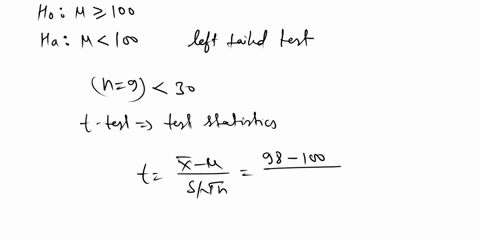 H₀: μ ≥ 100
Ha: μ < 100 left tailed test
(n=9) < 30
t-test => test statistics
t = (x̄-μ)/(S/√n) = 98-100